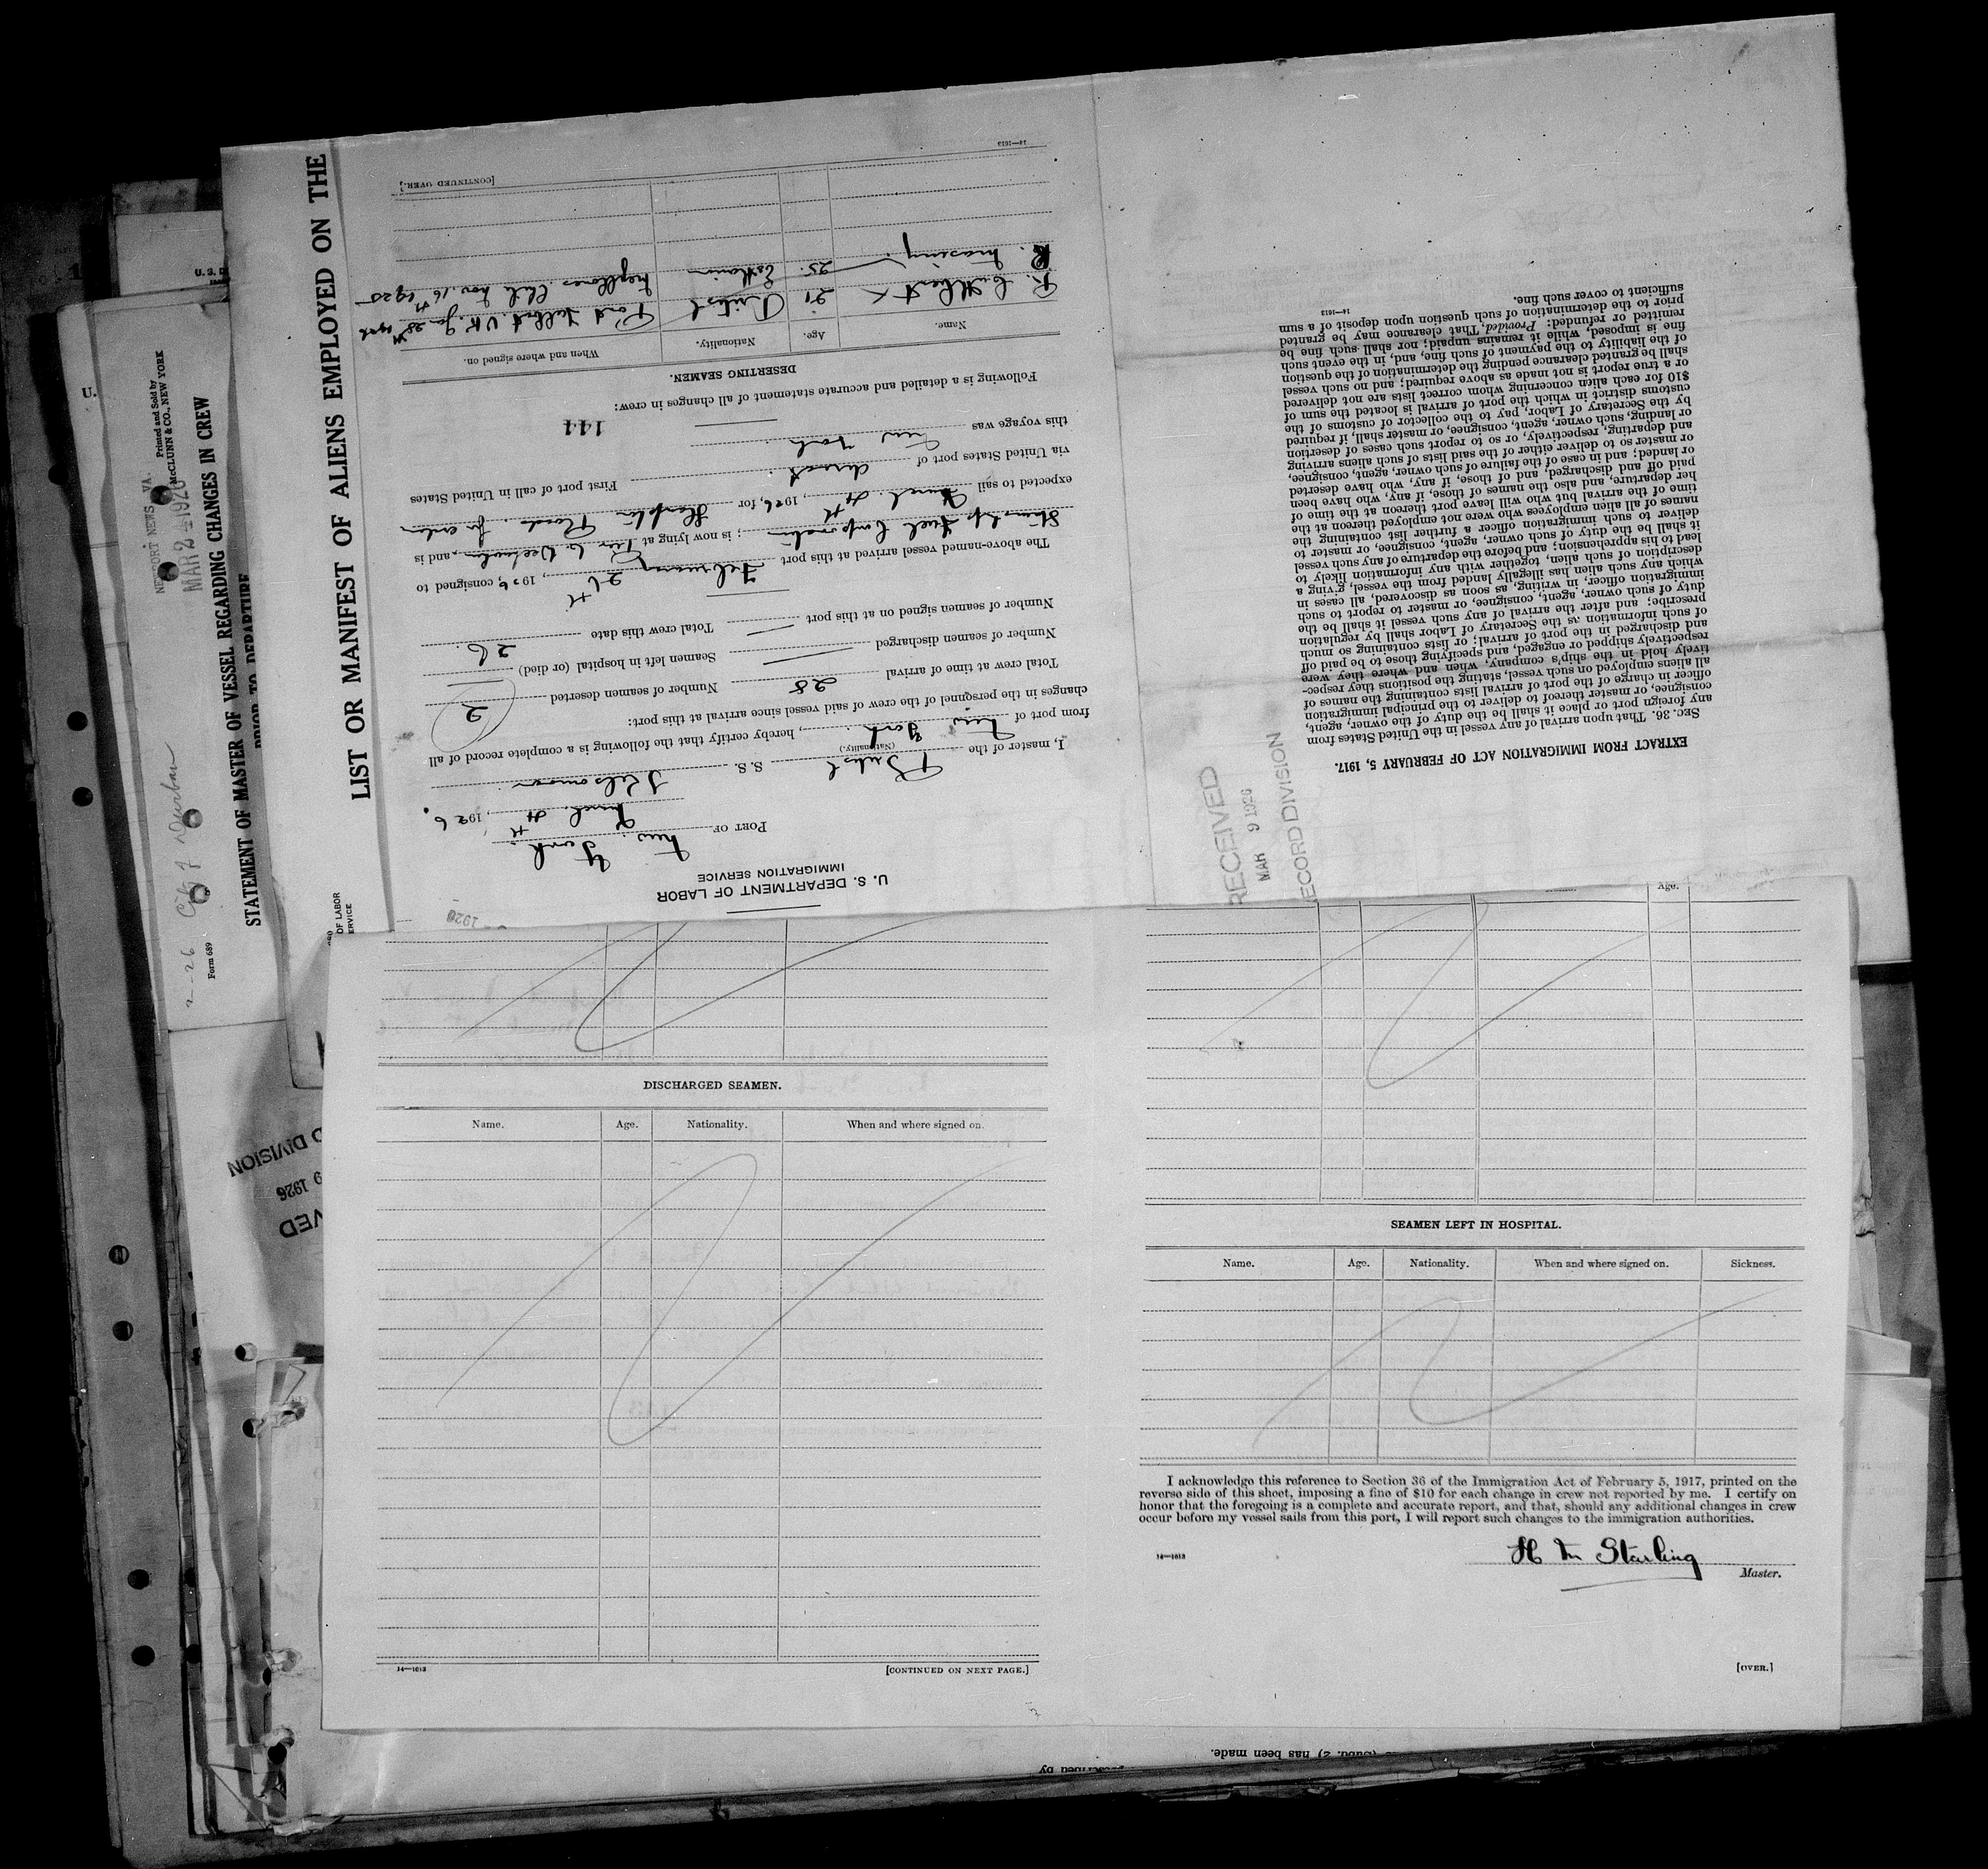 LIST OR MANIFEST OF ALIENS EMPLOYED ON THE
STATEMENT OF MASTER OF VESSEL REGARDING CHANGES IN CREW
PRIOR TO DEPARTURE
Printed and Sold by
McCLUNN & CO., NEW YORK
NEWPORT NEWS, VA.
MAR 2 - 1926
City of Durban
Form 689
OF LABOR
ERVICE
U. S. DEPARTMENT OF LABOR
IMMIGRATION SERVICE
PORT OF New York
March 4th, 1926.
I, master of the British S.S.
(Nationality.)
from port of New York, hereby certify that the following is a complete record of all
changes in the personnel of the crew of said vessel since arrival at this port:
Total crew at time of arrival 28 Number of seamen deserted 2
Number of seamen discharged — Seamen left in hospital (or died) —
Number of seamen signed on at this port — Total crew this date 26.
The above-named vessel arrived at this port February 26th, 1926, consigned to
Steamship Fuel Corporation; is now lying at Pier 6 and is
expected to sail March 4th, 1926, for Hampton Roads for orders
via United States port of direct. First port of call in United States
this voyage was New York.
144
Following is a detailed and accurate statement of all changes in crew:
DESERTING SEAMEN.
Name. Age. Nationality. When and where signed on.
R. Cuthbert 21 British Port Talbot U.K. Jan 28th 1926
R. 25. Esthonian Mejillones. Chile Nov. 16th 1925
[CONTINUED OVER.]
14—1613
EXTRACT FROM IMMIGRATION ACT OF FEBRUARY 5, 1917.
SEC. 36. That upon arrival of any vessel in the United States from
any foreign port or place it shall be the duty of the owner, agent,
consignee, or master thereof to deliver to the principal immigration
officer in charge of the port of arrival lists containing the names of
all aliens employed on such vessel, stating the positions they respec-
tively hold in the ship's company, when and where they were
respectively shipped or engaged, and specifying those to be paid off
and discharged in the port of arrival; or lists containing so much
of such information as the Secretary of Labor shall by regulation
prescribe; and after the arrival of any such vessel it shall be the
duty of such owner, agent, consignee, or master to report to such
immigration officer, in writing, as soon as discovered, all cases in
which any such alien has illegally landed from the vessel, giving a
description of such alien, together with any information likely to
lead to his apprehension; and before the departure of any such vessel
it shall be the duty of such owner, agent, consignee, or master to
deliver to such immigration officer a further list containing the
names of all alien employees who were not employed thereon at the
time of the arrival but who will leave port thereon at the time of
her departure, and also the names of those, if any, who have been
paid off and discharged, and of those, if any, who have deserted
or landed; and in case of the failure of such owner, agent, consignee,
or master so to deliver either of the said lists of such aliens arriving
and departing, respectively, or so to report such cases of desertion
or landing, such owner, agent, consignee, or master shall, if required
by the Secretary of Labor, pay to the collector of customs of the
customs district in which the port of arrival is located the sum of
$10 for each alien concerning whom correct lists are not delivered
or a true report is not made as above required; and no such vessel
shall be granted clearance pending the determination of the question
of the liability to the payment of such fine, and, in the event such
fine is imposed, while it remains unpaid; nor shall such fine be
remitted or refunded: Provided, That clearance may be granted
prior to the determination of such question upon deposit of a sum
sufficient to cover such fine.
14—1613
RECEIVED
MAR 9 1926
RECORD DIVISION
D DIVISION
9 1926
VED
Age.
DISCHARGED SEAMEN.
Name. Age. Nationality. When and where signed on.
14—1613
[CONTINUED ON NEXT PAGE.]
SEAMEN LEFT IN HOSPITAL.
Name. Age. Nationality. When and where signed on. Sickness.
I acknowledge this reference to Section 36 of the Immigration Act of February 5, 1917, printed on the
reverse side of this sheet, imposing a fine of $10 for each change in crew not reported by me. I certify on
honor that the foregoing is a complete and accurate report, and that, should any additional changes in crew
occur before my vessel sails from this port, I will report such changes to the immigration authorities.
14—1613
H M Starling
Master.
[OVER.]
has been made.